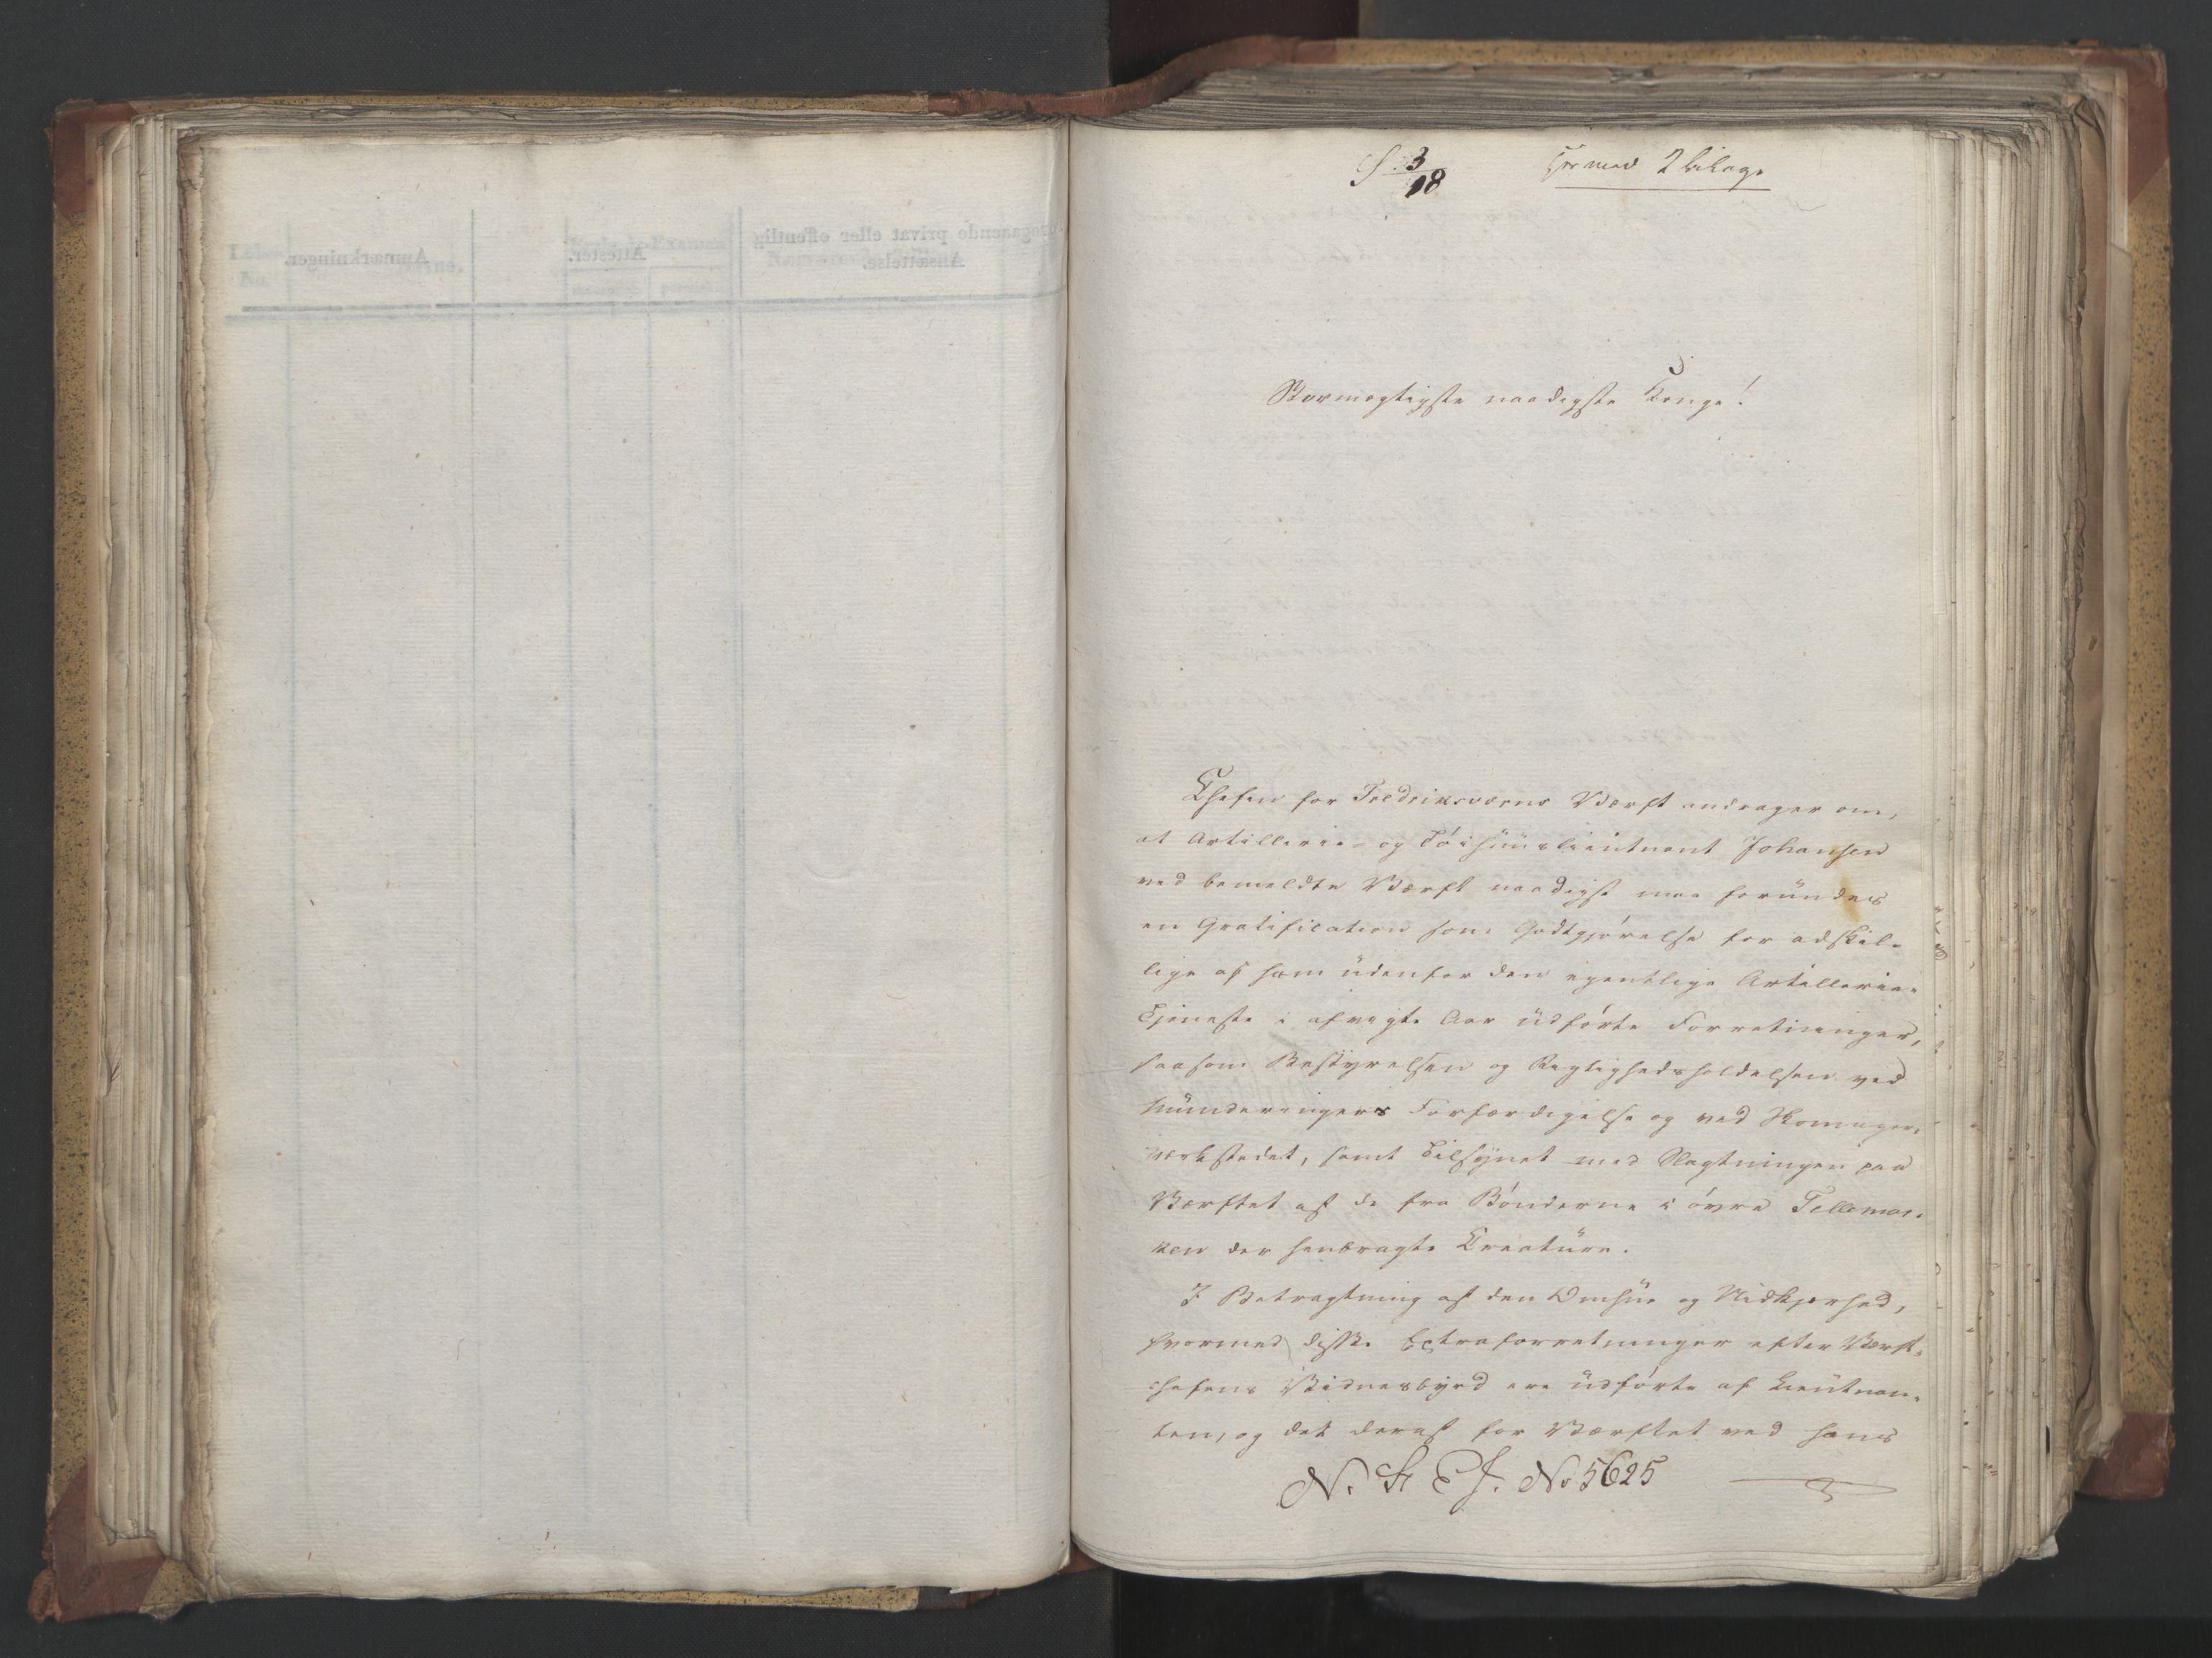 S 3/18
Hermed 2 bilage
Stormægtigste naadigste Konge!
Chefen for Fredriksværns Værft andrager om,
at Artillerie- og Tøihuuslieutnant Johansen
ved bemeldte Værft naadigst maa forundes
en Gratification som Godtgjørelse for adskil-
lige af ham udenfor den egentlige Artillerie-
Tjeneste i afvigte Aar udførte Forretninger,
saasom Bestyrelsen og Rigtighedsholdelsen ved
Munderingers Forfærdigelse og ved Skomager-
værkstedet, samt Tilsynet med Slagtningen paa
Værftet af de fra Bønderne i øvre Tellemar-
ken der henbragte Creature.
I Betragtning af den Omhue og Nidkjærhed,
hvormed disse Extraforretninger efter Værft-
chefens Vidnesbyrd ere udførte af Lieutnan-
ten, og det deraf for Værftet ved hans
No 5625
Løbe
No.
Anmærkninger.
Attester.
Examen
Foregaaende privat eller offentlig
Ansættelse.